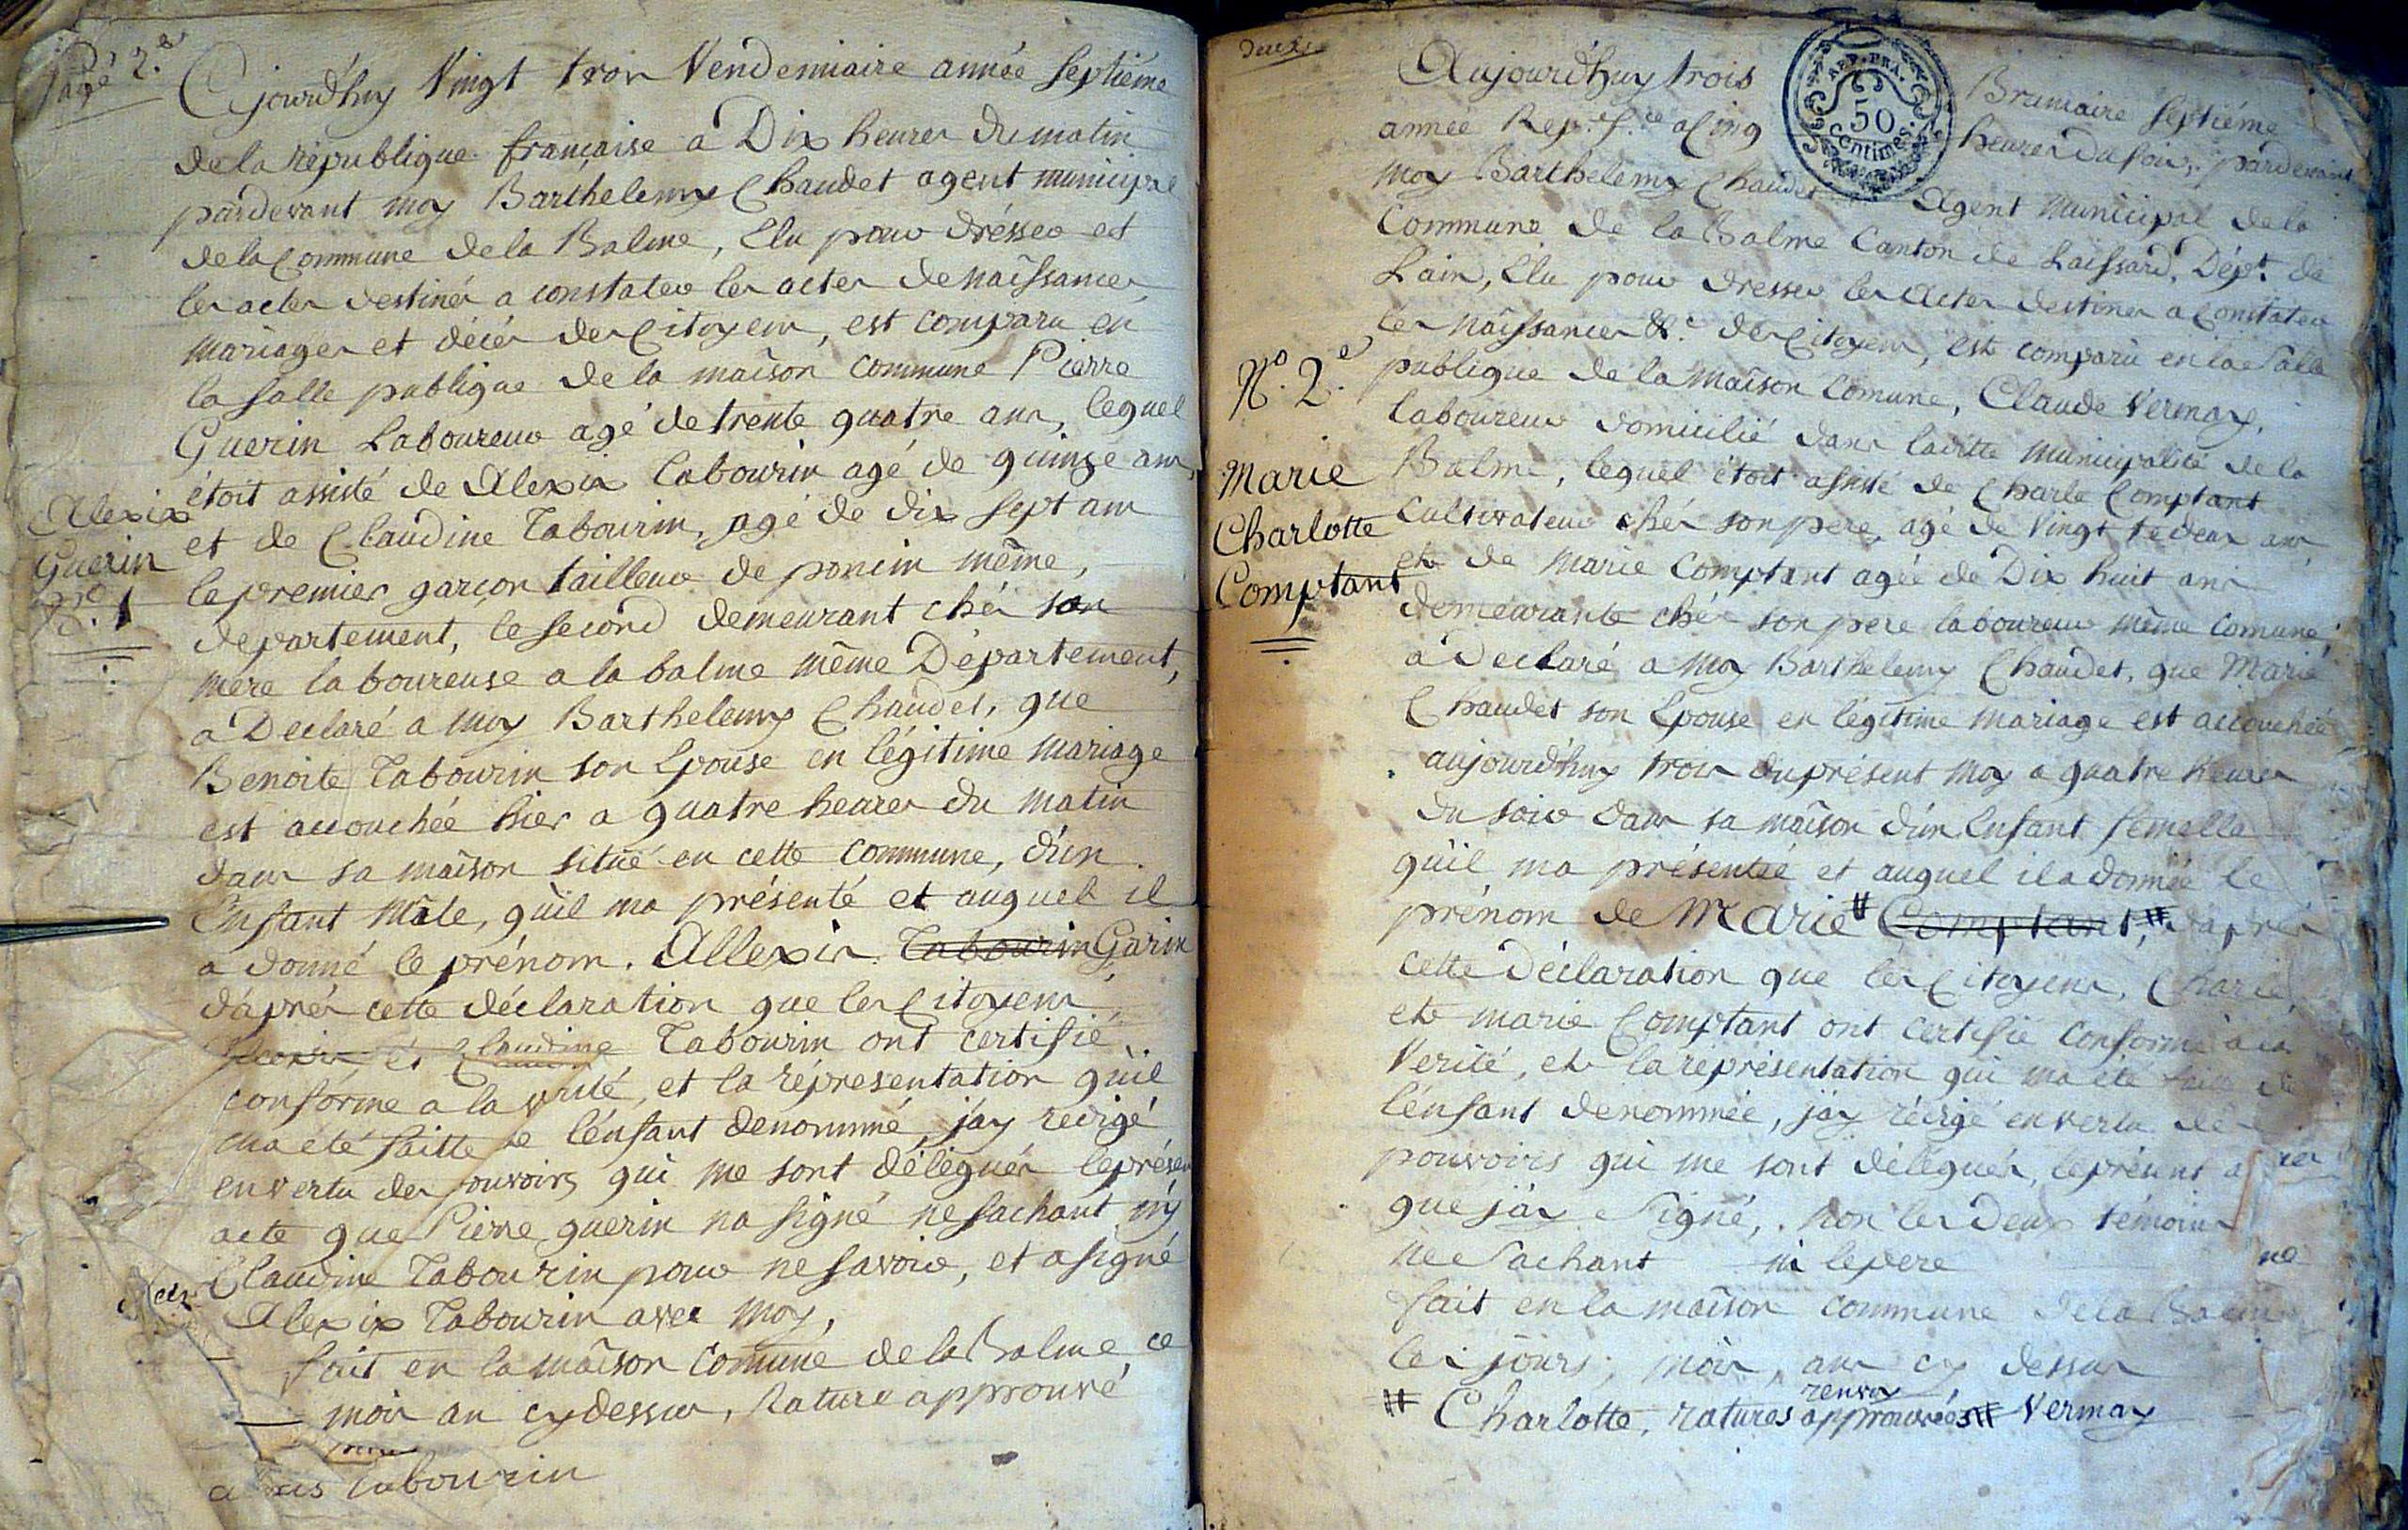 Page 2.e
Cejourd'huy Vingt trois Vendemiaire année septiéme
de la république française a Dix heures du matin
pardevant moy Barthelemy Chaudet agent municipal
de la Commune de la Balme, Elu pour drésser et
les actes destinés a constater les actes de naissances
mariages et décés des Citoyens, est comparu en
la salle publique de la maison commune Pierre
Guerin Laboureur agé de trente quatre ans, lequel
étoit assisté de Alexis tabourin agé de quinze ans,
et de Claudine Tabourin, agé de dix sept ans
le premier garçon tailleur de poncin même,
departement, le second demeurant chés son
mere laboureuse a la balme même Département,
a Declaré a moy Barthelemy Chaudet, que
Benoite Tabourin son Epouse en légitime mariage
est accouchée hier a quatre heures du matin
dans sa maison situé en cette commune, d'un
Enfant Mâle, qu'il ma présenté et auquel il
a donné le prénom. Allexis Tabourin Garin
d'aprés cette déclaration que les Citoyens
Alexis et Claudine Tabourin ont certifié
conforme a la vérité, et la réprésentation qu'il
ma été faitte de l'enfant denommé, j'ay redigé
en vertu des pouvoirs qui me sont délégués le présen
acte que Pierre guerin na signé ne sachant n'y
Claudine Tabourin pour ne savoir, et a signé
Alexis Tabourin avec moy,
fait en la maison comune de la Balme, ce
mois an cy dessus, Rature approuvé
tabourin
Alexix
Guerin
N.o 1
Aujourd'huy trois Brumaire septiéme
année Rep.e f.se a Cinq heures du soir, pardevant
moy Barthélemy Chaudet Agent Municipal de la
Commune de la Balme Canton de Laissard, Dép.t de
Lain, Elu pour dresser les Actes destinés a constater
les naissances &.c des Citoyens, est comparu en la salle
publique de la maison comune, Claude Vermay,
laboureur domicilié dans laditte municipalité de la
Balme, lequel étoit assisté de Charle Comptant
Cultivateur chés son pere, agé de Vingt ans
et de Marie Comptant agée de Dix huit ans
demeurante chés son pere laboureur même comune,
a Declaré a moy Barthelemy Chaudet, que Marie
Chaudet son Epouse en légitime mariage est accouchée
aujourd'huy trois du présent moy a quatre heures
du soir dans sa maison d'un Enfant femelle
qu'il ma présentée et auquel il a donnée le
prénom de Marie # Comptant, # d'aprés
cette Déclaration que les Citoyens, Charle,
et marie Comptant ont certifié conforme a la
Verité, et la réprésentation qui ma été faite de
l'enfant denommée, j'ay rédigé en vertu de
pouvoirs qui me sont délégués, le présent
que j'ay Signé, non les deux témoins
ne sachant ni le pere ne
fait en la maison commune de la Balme
les jours, mois, an cy dessus
# Charlotte, ratures renvoy approuvées # Vermay
N.o 2.e
Marie
Charlotte
Comptant
REP. FRA.
50
Centimes.